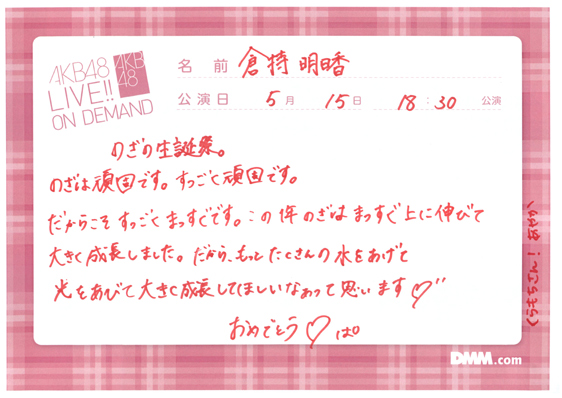 AKB48
LIVE!!
ON DEMAND
AKB
48
名 前 倉持明日香
公演日 5月 15日 18:30 公演
のぎの生誕祭。
のぎは頑固です。すっごく頑固です。
だからこそすっごくまっすぐです。この1年のぎはまっすぐ上に伸びて
大きく成長しました。だから、もっとたくさんの水をあげて
光をあびて大きく成長してほしいなぁって思います♡"
おめでとう♡ ぱ。
くらもちさん! あやかへ
DMM.com